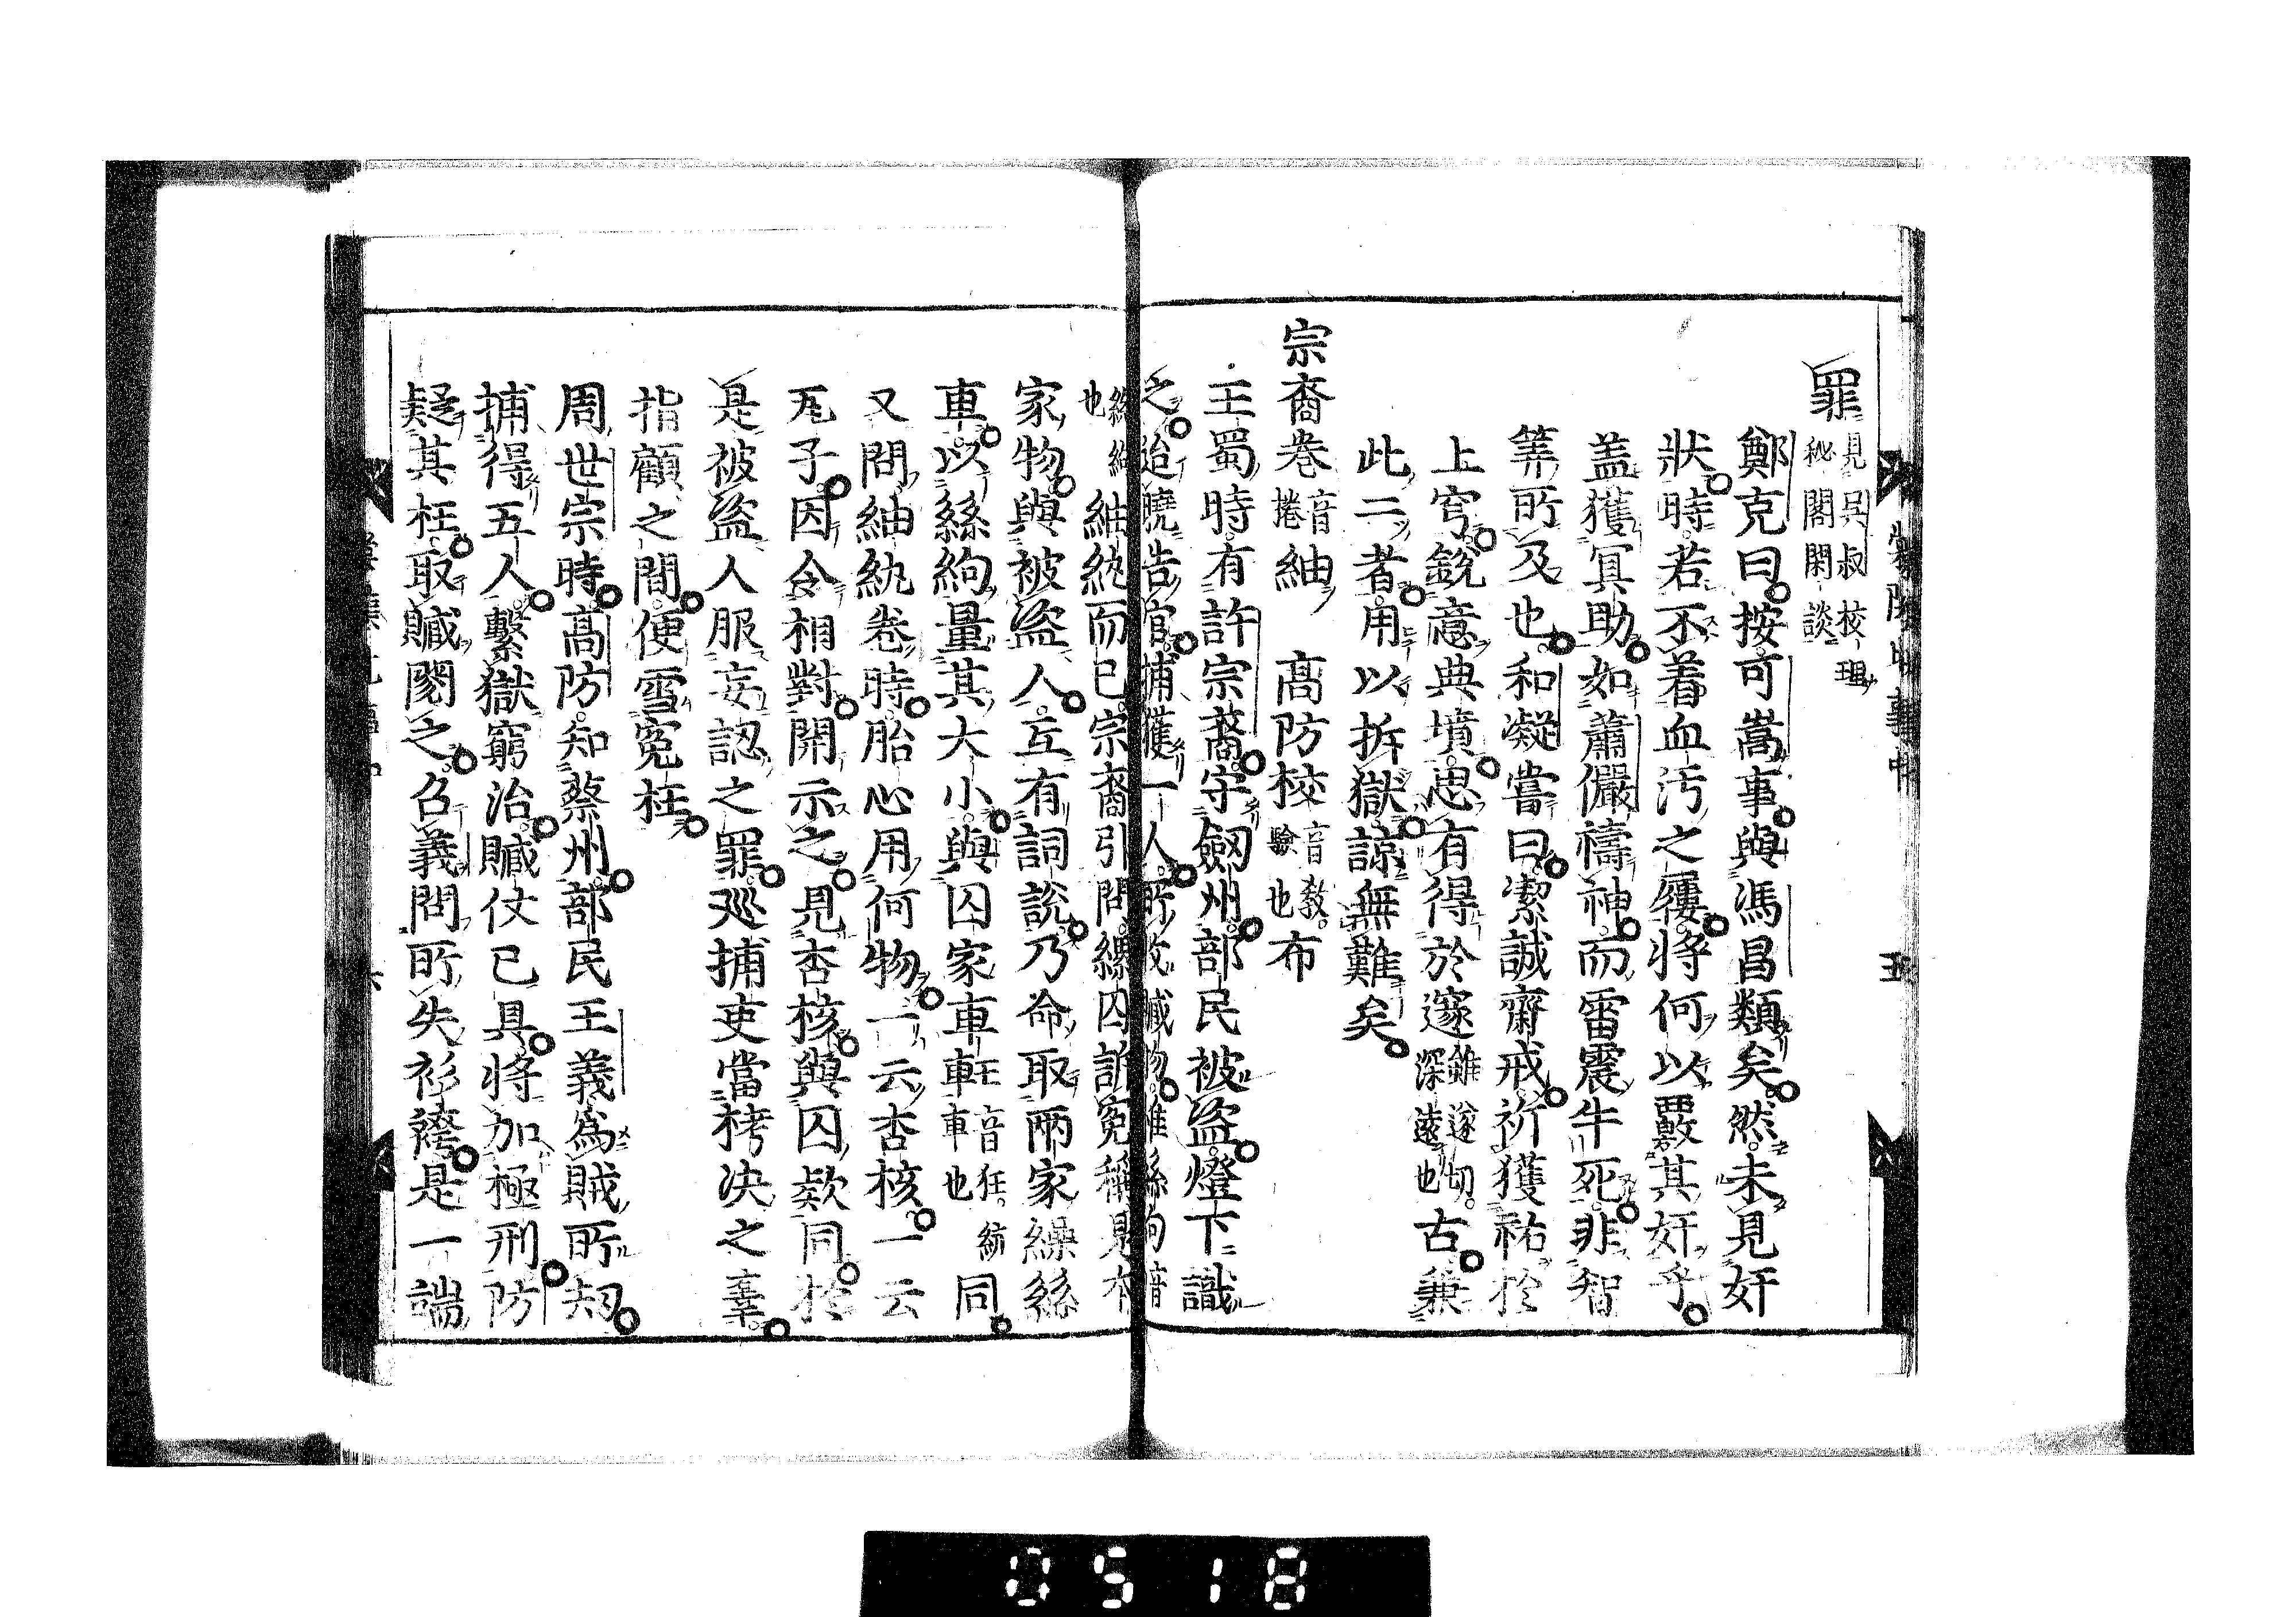 罪見吳叔校理秘閣閑談
鄭克曰按可嵩事與馮昌類矣然未見奸
狀時若不着血汚之屨將何以覈其奸乎
盖獲冥助如蕭儼禱神而雷震牛死非智
筭所及也和凝嘗曰潔誠齋戒祈獲祐於
上穹銳意典墳思有得於邃雖遂切深遠也古兼
此二者用以拆獄諒無難矣
宗裔卷音捲紬 高防校音敎驗也布
王蜀時有許宗裔守劔州部民被盜燈下識
之迨曉告官捕獲一人所收贓物唯絲絇音
紬紈而已宗裔引問縲囚訴冤稱是本
家物與被盜人互有詞說乃命取兩家繰絲
車以絲絇量其大小與囚家車軖音狂紡車也同
又問紬紈卷時胎心用何物一云杏核一云
瓦子因令相對開示之見杏核與囚欵同於
是被盜人服妄認之罪巡捕吏當栲決之辜
指顧之間便雪冤枉
周世宗時高防知蔡州部民王義爲賊所刼
捕得五人繫獄窮治贓仗已具將加極刑防
疑其枉取贓閱之召義問所失衫袴是一端
五
0518